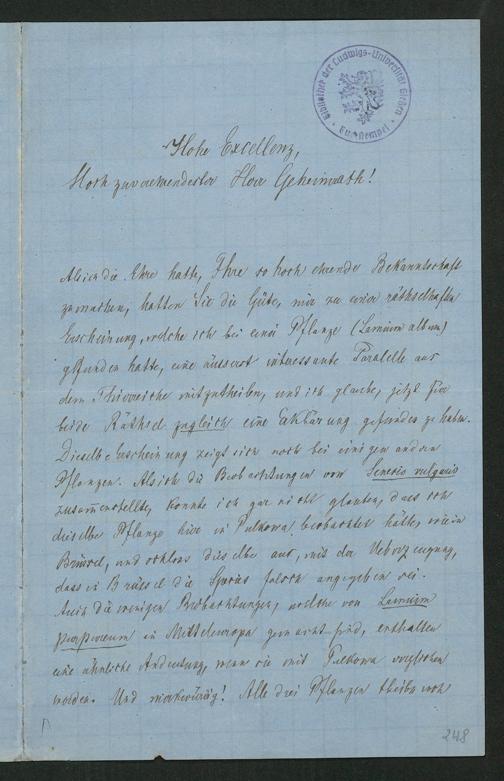 Bibliothek der Ludwigs-Universität Gießen
Hohe Excellenz,
Hoch zuverehrendester Herr Geheimrath!
Als ich die Ehre hatte, Ihre so hoch ehrende Bekanntschaft
zu machen, hatten Sie die Güte, mir zu einer räthselhaften
Erscheinung, welche ich bei einer Pflanze (Lamium album)
gefunden hatte, eine äusserst interessante Paralelle aus
dem Thierreiche mitzutheilen, und ich glaube, jetzt für
beide Räthsel zugleich eine Erklärung gefunden zu haben.
Dieselbe Erscheinung zeigt sich noch bei einigen andern
Pflanzen. Als ich die Beobachtungen von Senecio vulgaris
zusammenstellte, konnte ich gar nicht glauben, dass ich
dieselbe Pflanze hier in Pulkowa beobachtet hätte, wie in
Brüssel, und schloss dieselbe aus, mit der Ueberzeugung,
dass in Brüssel die Species falsch angegeben sei.
Auch die wenigen Beobachtungen, welche von Lamium
purpureum in Mitteleuropa gemacht sind, enthalten
eine ähnliche Andeutung, wenn sie mit Pulkowa verglichen
werden. Und merkwürdig! Alle drei Pflanzen theilen noch
248